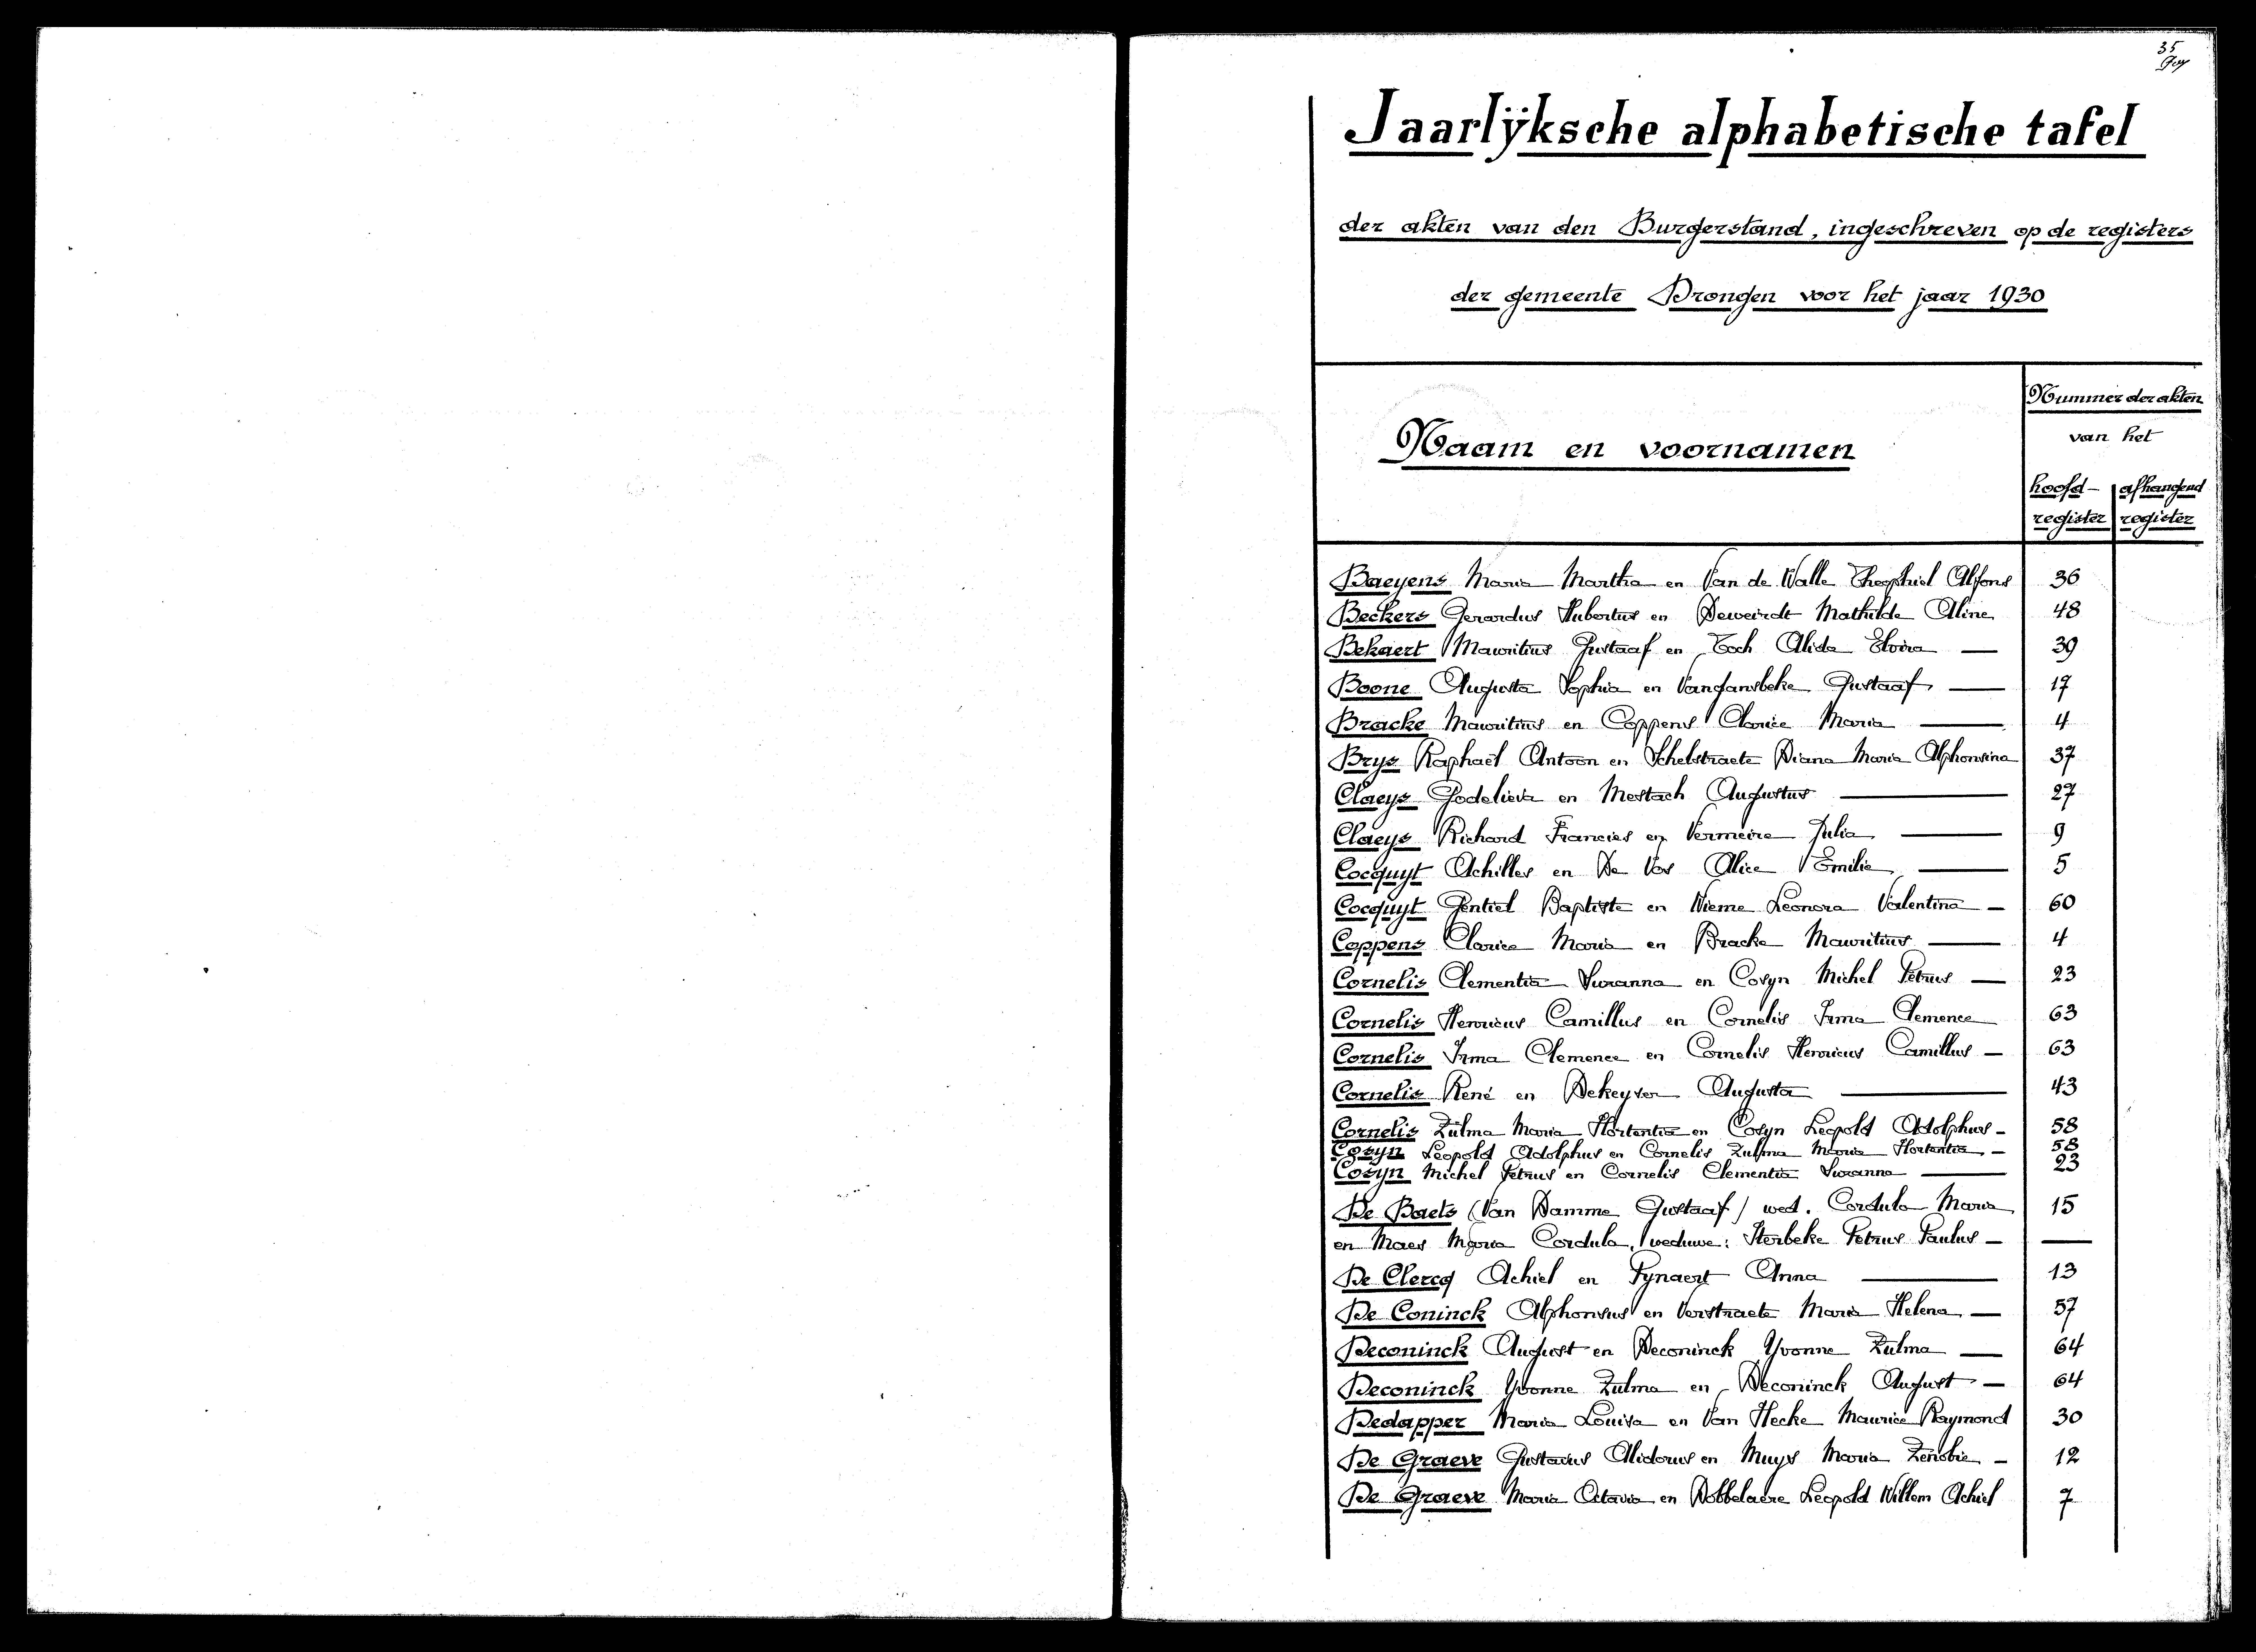 35
Jaarlÿksche alphabetische tafel
der akten van den Burgerstand, ingeschreven op de registers
der gemeente Drongen voor het jaar 1930
Naam en voornamen
Nummer der akten
van het
hoofd- afhangend
register register
Baeyens Maria Martha en Van de Walle Theophiel Alfons 36
Beckers Gerardus Hubertus en Deweirdt Mathilde Aline 48
Bekaert Mauritius Gustaaf en Toch Alida Elvira — 39
Boone Augusta Sophia en Vangansbeke Gustaaf — 17
Bracke Mauritius en Coppens Clarice Maria — 4
Brys Raphaël Antoon en Schelstraete Diana Maria Alphonsina 37
Claeys Godelieva en Mestach Augustus — 27
Claeys Richard Francies en Vermeire Julia — 9
Cocquyt Achilles en De Vos Alice Emilie — 5
Cocquyt Gentiel Baptiste en Wieme Leonora Valentina — 60
Coppens Clarice Maria en Bracke Mauritius — 4
Cornelis Clementia Suzanna en Cosyn Michel Petrus — 23
Cornelis Henricus Camillus en Cornelis Irma Clemence 63
Cornelis Irma Clemence en Cornelis Henricus Camillus — 63
Cornelis René en Dekeyser Augusta — 43
Cornelis Zulma Maria Hortentia en Cosyn Leopold Adolphus - 58
Cosyn Leopold Adolphus en Cornelis Zulma Maria Hortentia — 58
Cosyn Michel Petrus en Cornelis Clementia Suzanna — 23
De Baets (Van Damme Gustaaf) wed. Cordula Maria 15
en Maes Maria Cordula, weduwe: Sterbeke Petrus Paulus — —
De Clercq Achiel en Tynaert Anna — 13
De Coninck Alphonsus en Verstraete Maria Helena — 57
Deconinck August en Deconinck Yvonne Zulma — 64
Deconinck Yvonne Zulma en Deconinck August — 64
Dedapper Maria Louisa en Van Hecke Maurice Raymond 30
De Graeve Gustavus Alidorus en Muys Maria Zenobie - 12
De Graeve Maria Octavia en Dobbelaere Leopold Willem Achiel 7